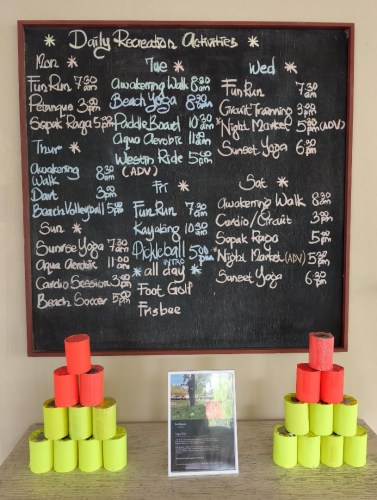 * Daily Recreation Activities *
Mon *
Fun Run 7:30 am
Petanque 3:00 pm
Sepak Raga 5:00 pm
Thur *
Awakening Walk 8:30 am
Dart 3:00 pm
Beach Volleyball 5:00 pm
Sun *
Sunrise Yoga 7:30 am
Aqua Aerobic 11:00 am
Cardio Session 3:00 pm
Beach Soccer 5:00 pm
Tue *
Awakening Walk 8:30 am
Beach Yoga 8:30 am
Paddle Board 10:30 am
Aqua Aerobic 11:00 am
Westin Ride 5:00 pm
(ADV)
Fri *
Fun Run 7:30 am
Kayaking 10:30 am
Pickleball 5:00 pm
INTRO
* all day *
Foot Golf
Frisbee
Wed *
Fun Run 7:30 am
Circuit Training 3:00 pm
*Night Market 5:00 pm (ADV)
Sunset Yoga 6:30 pm
Sat *
Awakening Walk 8:30 am
Cardio/Circuit 3:00 pm
Sepak Raga 5:00 pm
*Night Market (ADV) 5:00 pm
Sunset Yoga 6:30 pm